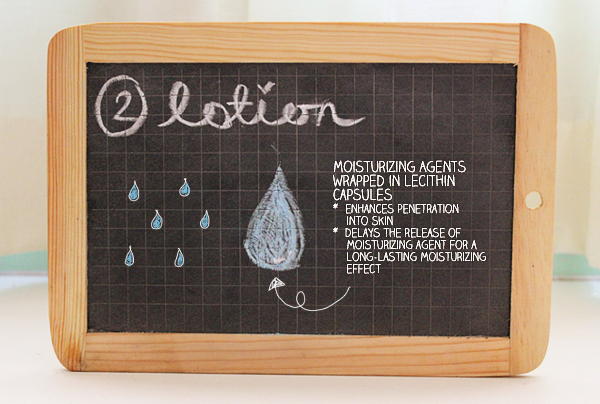 2 lotion
MOISTURIZING AGENTS
WRAPPED IN LECITHIN
CAPSULES
* ENHANCES PENETRATION
INTO SKIN
* DELAYS THE RELEASE OF
MOISTURIZING AGENT FOR A
LONG-LASTING MOISTURIZING
EFFECT